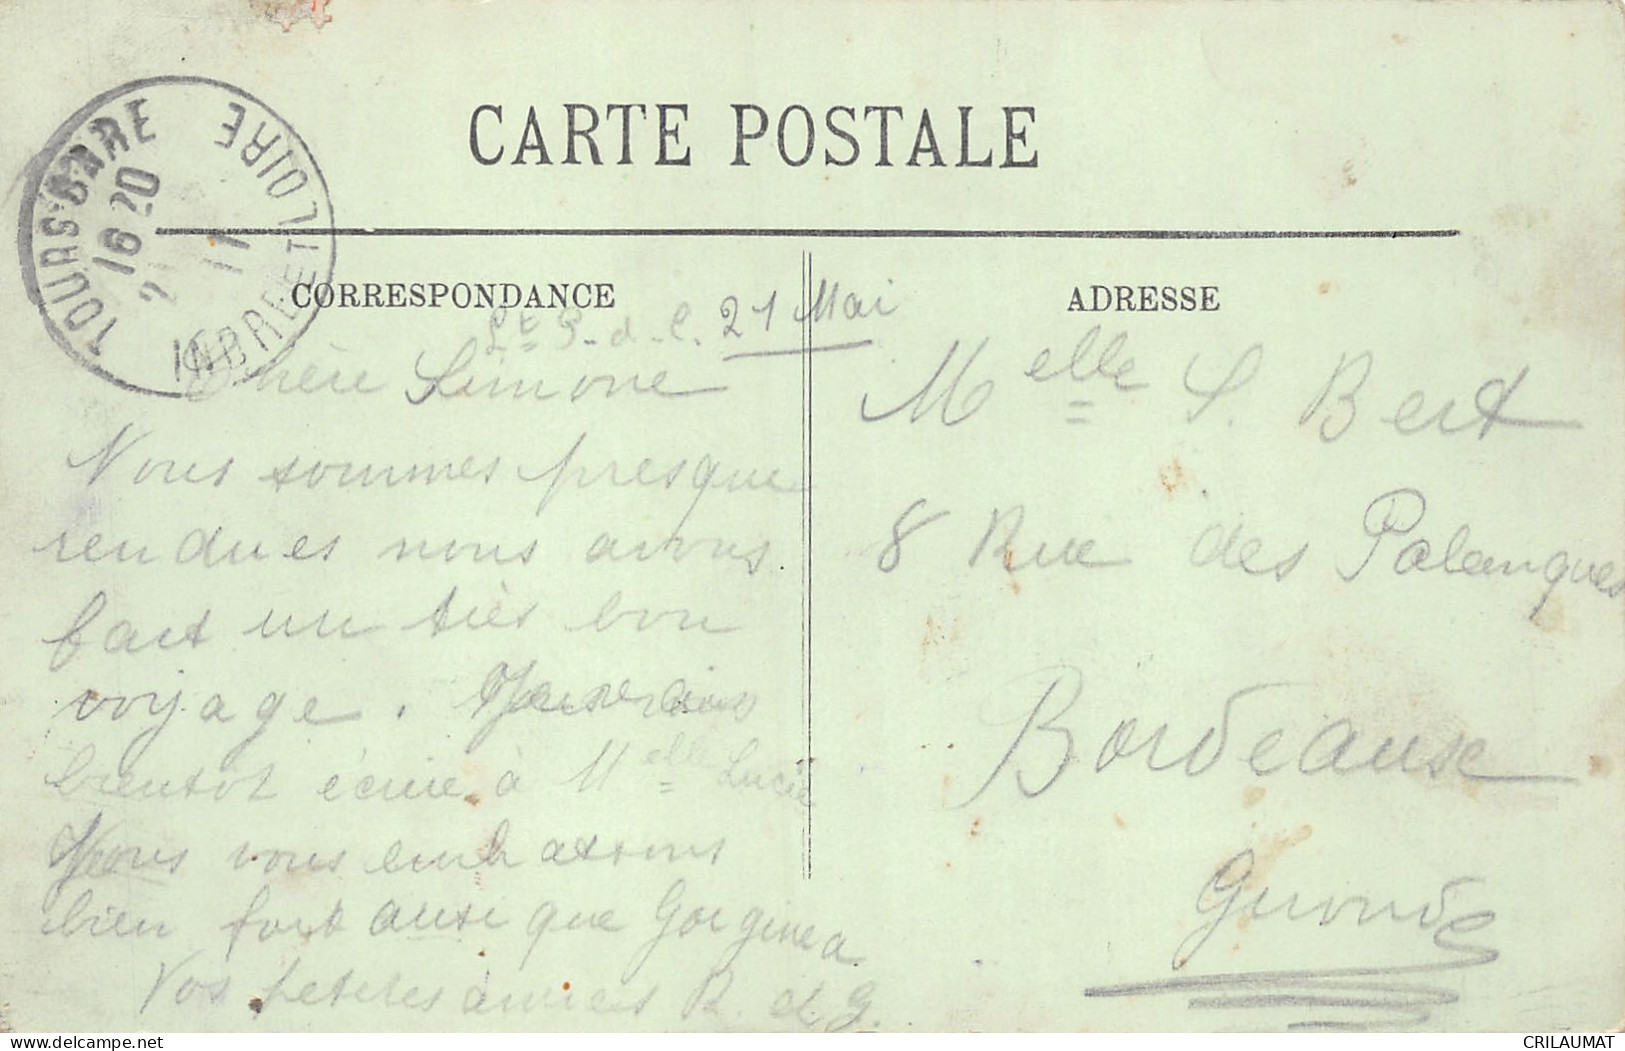 CARTE POSTALE
TOURS GARE
16 20
2
11
INDRE ET LOIRE
CORRESPONDANCE
ADRESSE
St P. d. C. 21 Mai
Chère Simone
Nous sommes presque
rendues nous avons
fait un très bon
voyage.
bientot écrire à Melle Lucie
Nous vous embrassons
bien fort ausi que
Vos petites amies R. et G.
Melle S. Bert
8 Rue des Palanques
Bordeaux
Gironde
CRILAUMAT